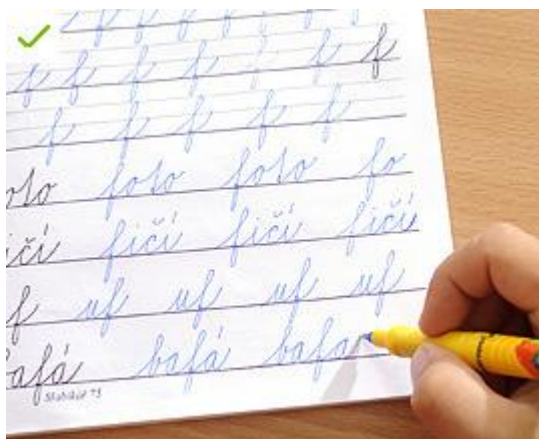 f f f f f
f f f f f f f
f f f f f
oto foto foto fo
ičí fičí fičí fičí
f uf uf uf uf
bafá bafá bafa